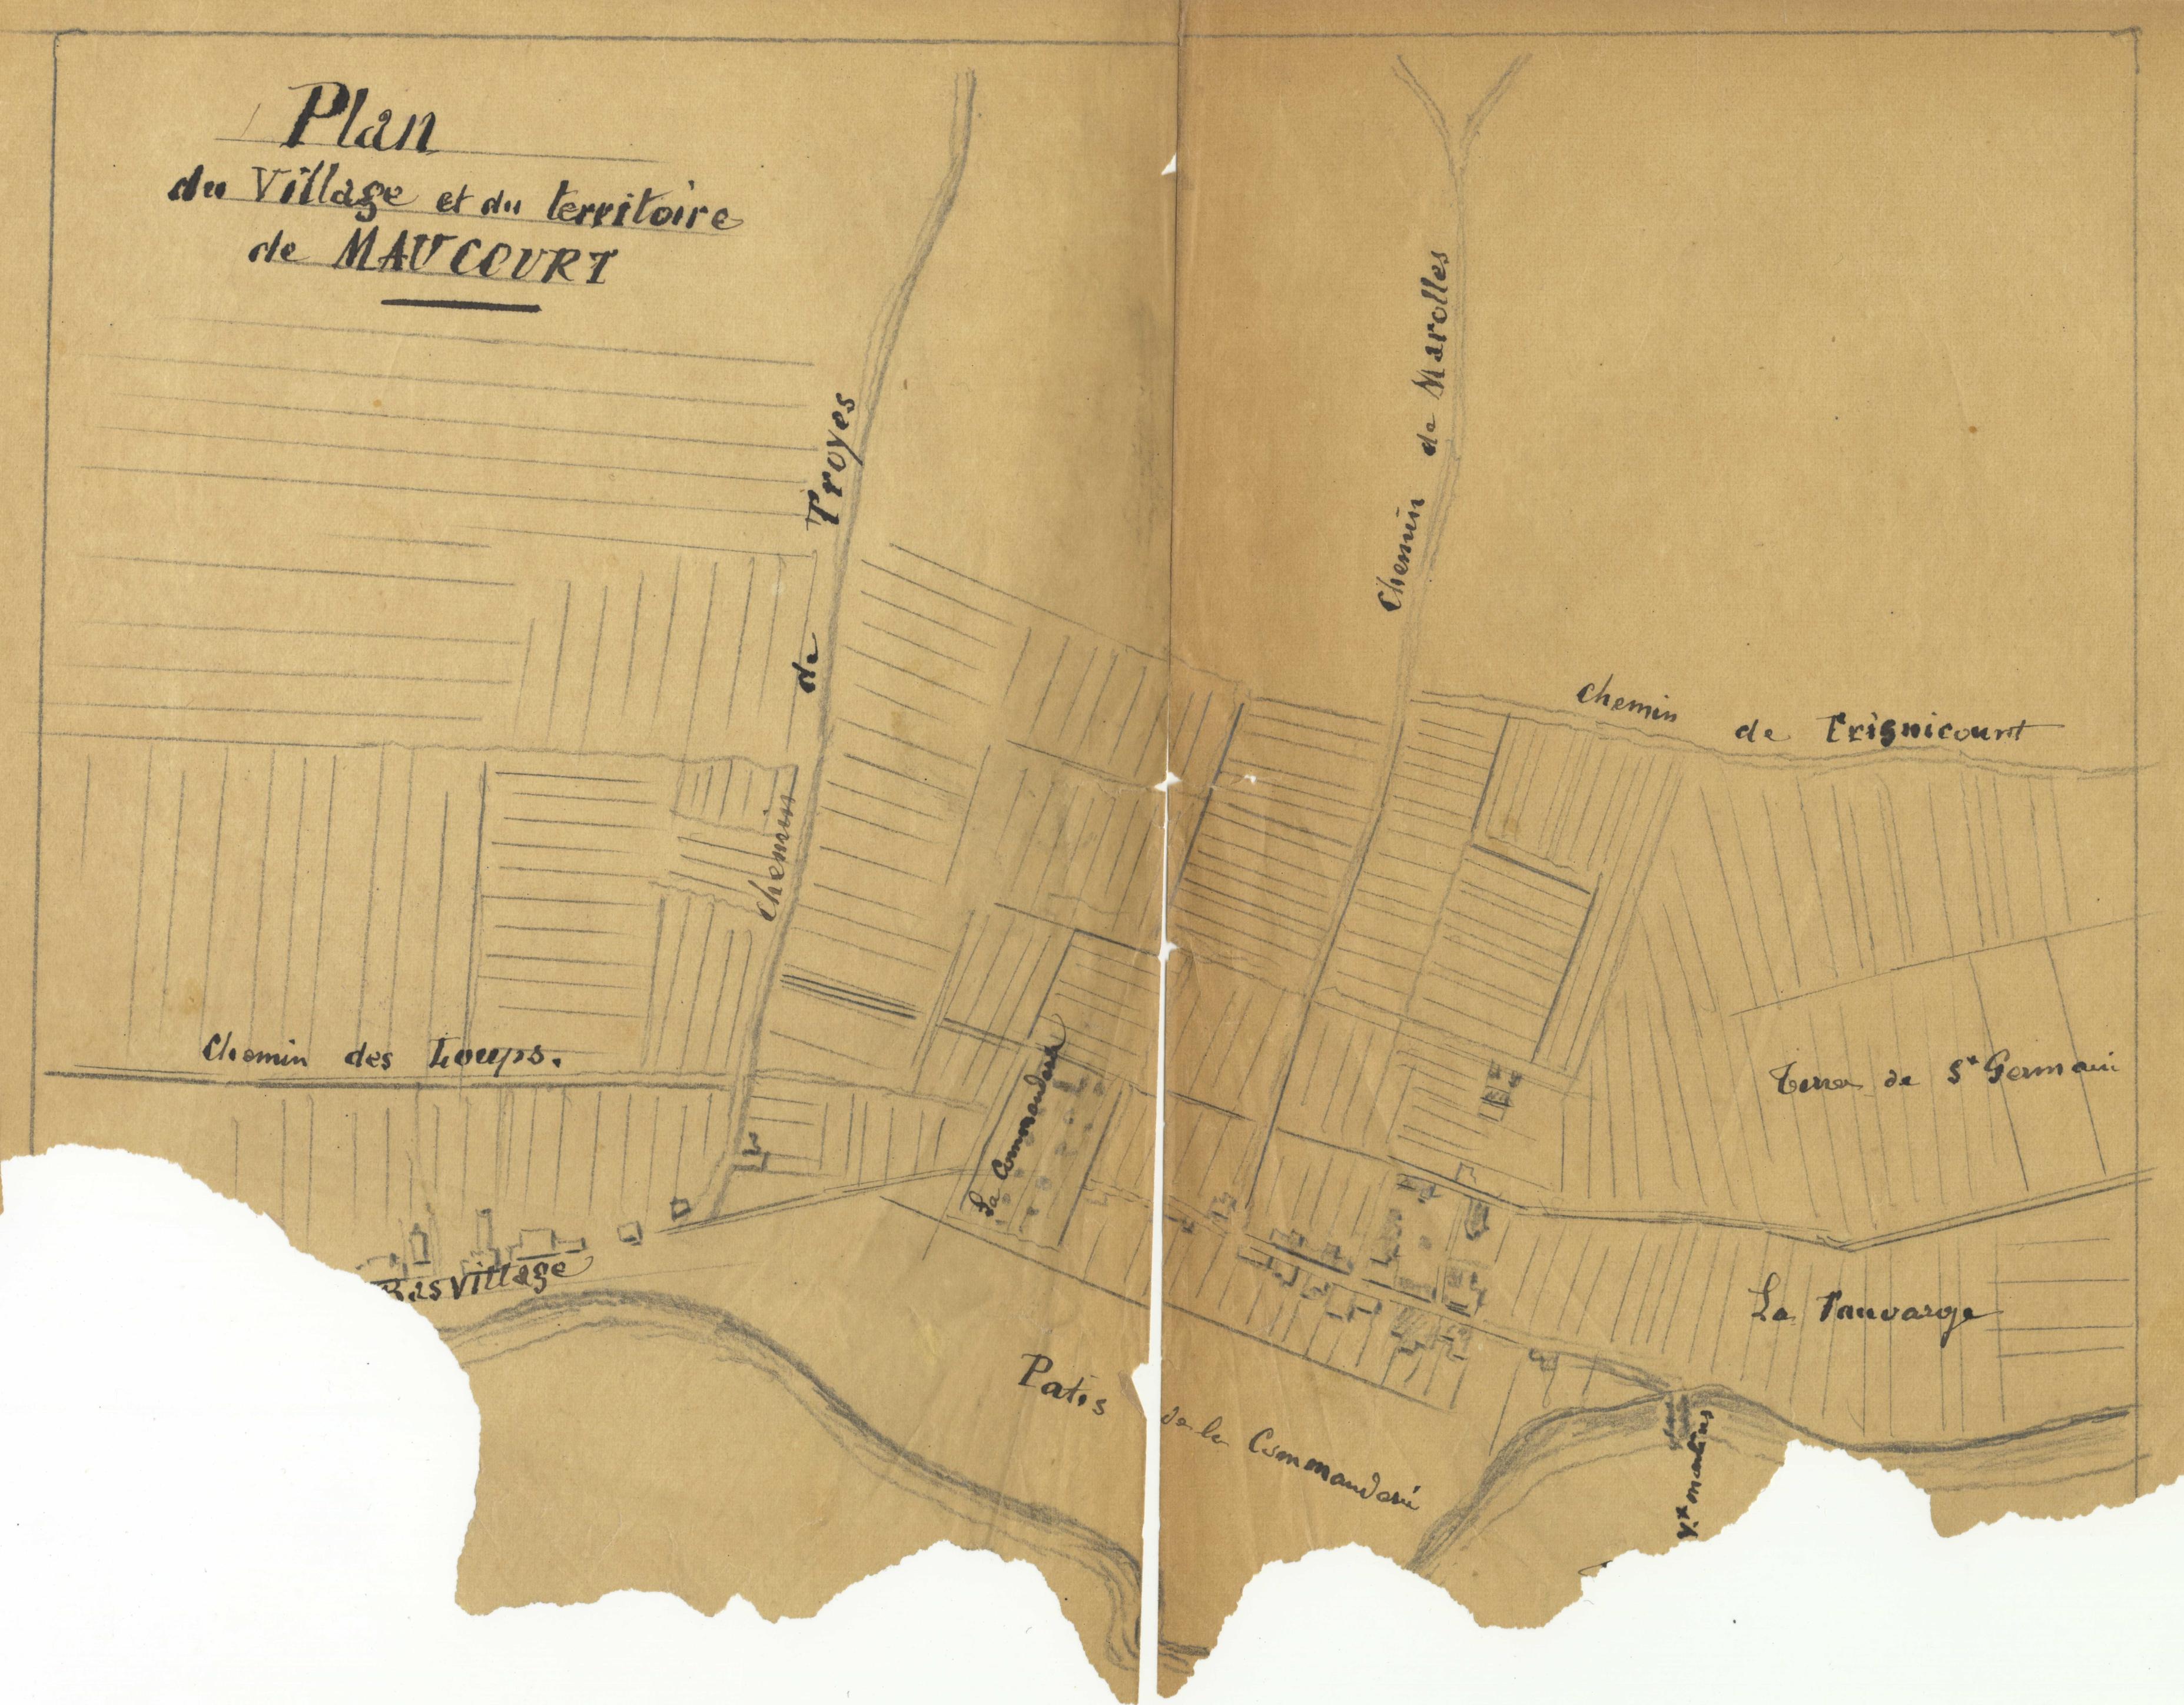 Plan
du Village et du territoire
de MAUCOURT
Chemin de Troyes
Chemin de Marolles
Chemin de Frignicourt
Chemin des Loups.
La Commanderie
Terres de St Germain
Bas village
La Pauvarge
Patis de la Commanderie
Vx moulins